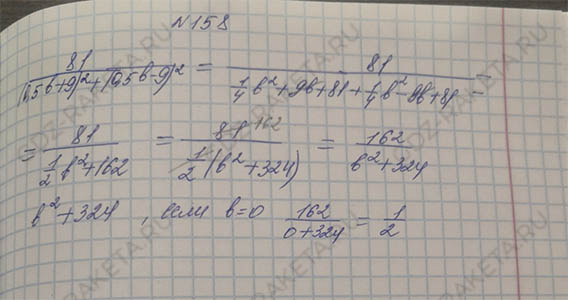 N158
81/((0,5b+9)²+(0,5b-9)²) = 81/(1/4 b²+9b+81+1/4 b²-9b+81) =
= 81/(1/2 b²+162) = 81 162/(1/2 (b²+324)) = 162/(b²+324)
b²+324 , если b=0 162/(0+324) = 1/2